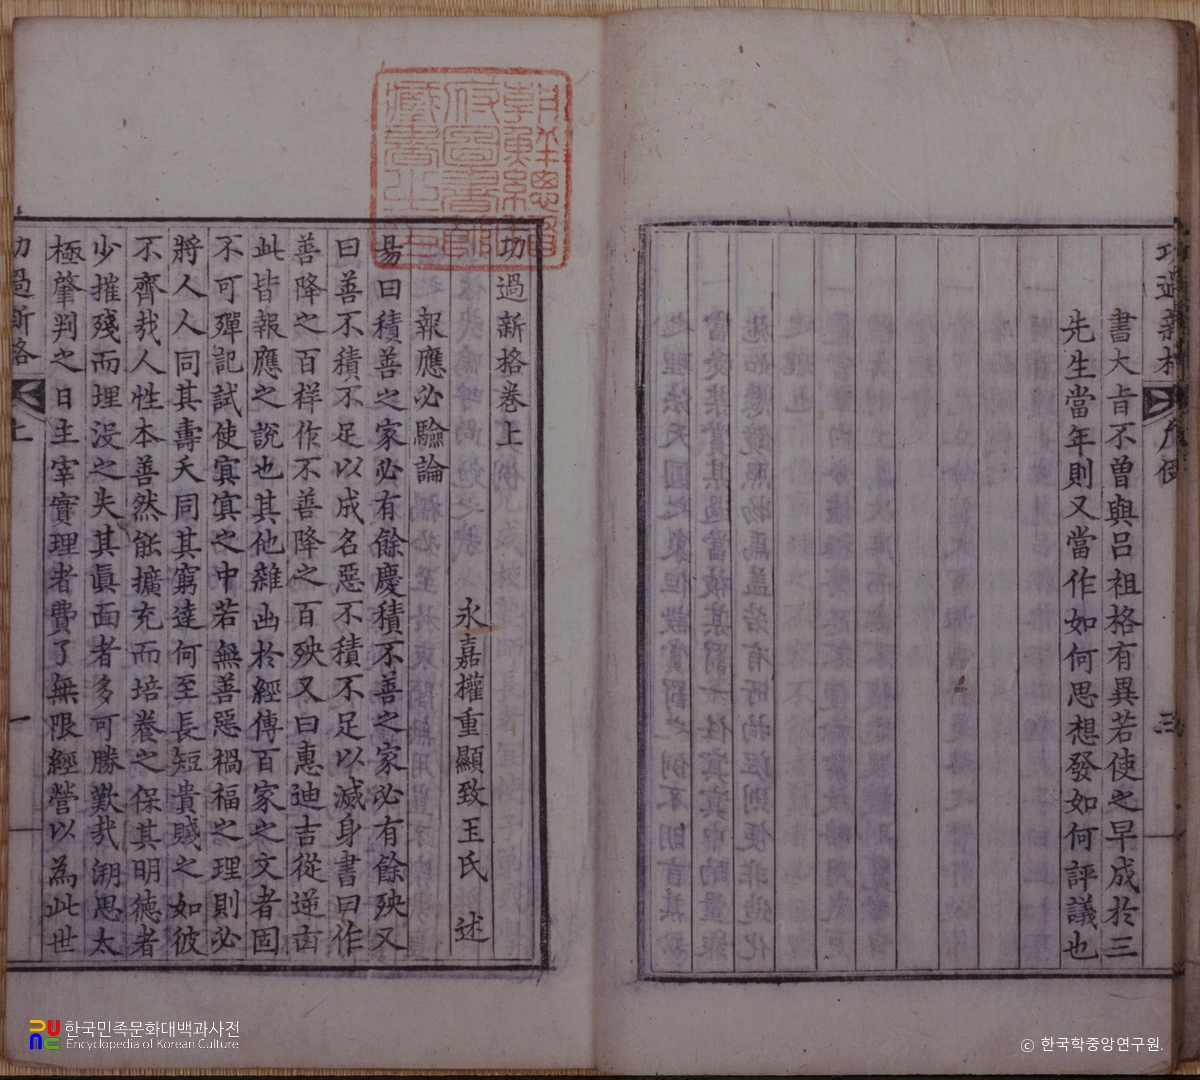 書大旨不曽與呂祖格有異若使之早成於三
先生當年則又當作如何思想發如何評議也
功過新格 序 三
朝鮮總督
府圖書館
藏書之印
功過新格卷上
永嘉權重顯致玉氏 述
報應必驗論
易曰積善之家必有餘慶積不善之家必有餘殃又
曰善不積不足以成名惡不積不足以滅身書曰作
善降之百祥作不善降之百殃又曰惠迪吉從逆凶
此皆報應之說也其他雜出於經傳百家之文者固
不可殫記試使寘寘之中若無善惡禍福之理則必
將人人同其壽夭同其窮達何至長短貴賤之如彼
不齊哉人性本善然能擴充而培養之保其明德者
少摧殘而埋沒之失其眞面者多可勝歎哉溯思太
極肇判之日主宰實理者費了無限經營以為此世
功過新格 上 一
한국민족문화대백과사전
Encyclopedia of Korean Culture
© 한국학중앙연구원.